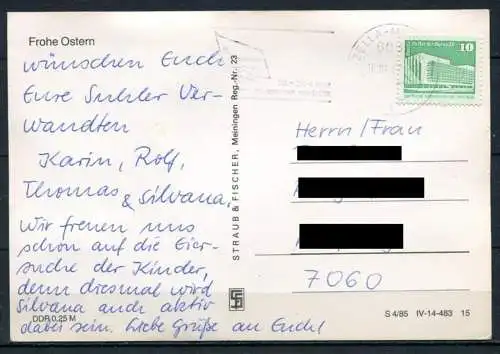 Frohe Ostern
wünschen Euch
Eure Suhler Ver-
wandten
Karin, Rolf,
Thomas & Silvana.
Wir freuen uns
schon auf die Eier-
suche der Kinder,
denn diesmal wird
Silvana auch aktiv
dabei sein. Liebe Grüße an Euch!
DDR 0,25 M
STRAUB & FISCHER, Meiningen Reg.-Nr. 23
ZELLA-M
10
Herrn/Frau
7060
S 4/85 IV-14-483 15